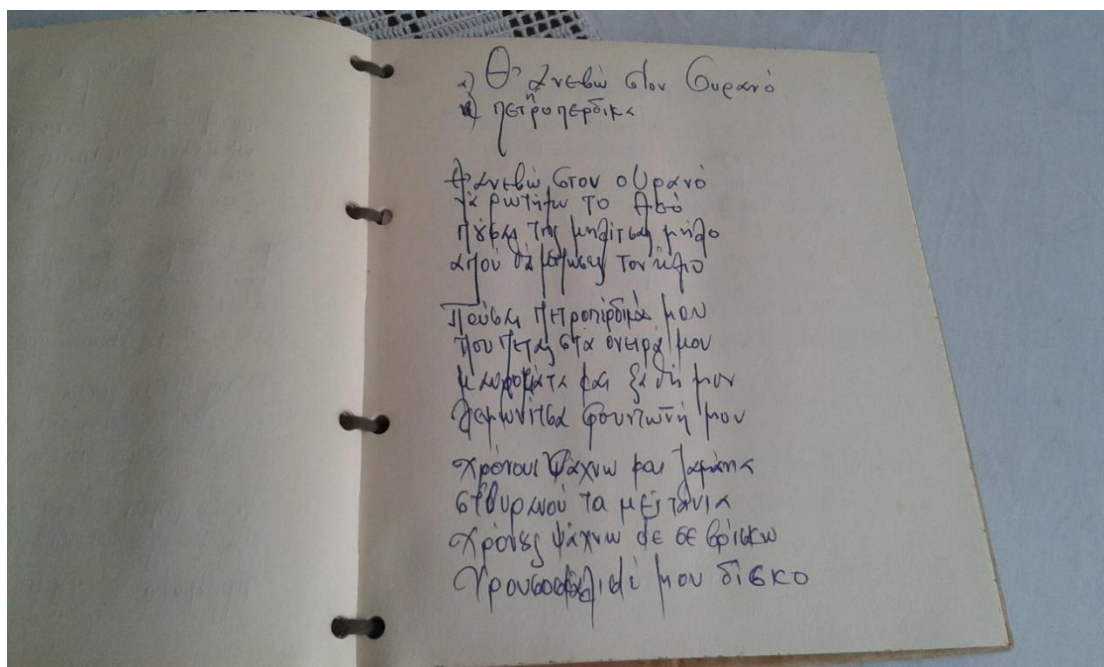 α) Θ' ανεβώ στον Ουρανό
η πετροπερδικα
Θ' ανεβώ στον οΥρανό
νά ρωτήσω το θεό
πούσαι της μηλίτσας μήλο
απού θά τον ήλιο
Πούσαι πετροπέρδικά μου
που πετάς στα όνειρά μου
μαυρομάτα και ξαθή μου
λεμωνίτσα φουντωτή μου
χρόνους ψάχνω και ζαμάνια
στ' Ουρανού τα μεϊτάνια
χρόνους ψάχνω δε σε βρίσκω
Χρουσοσκάλιστέ μου δίσκο